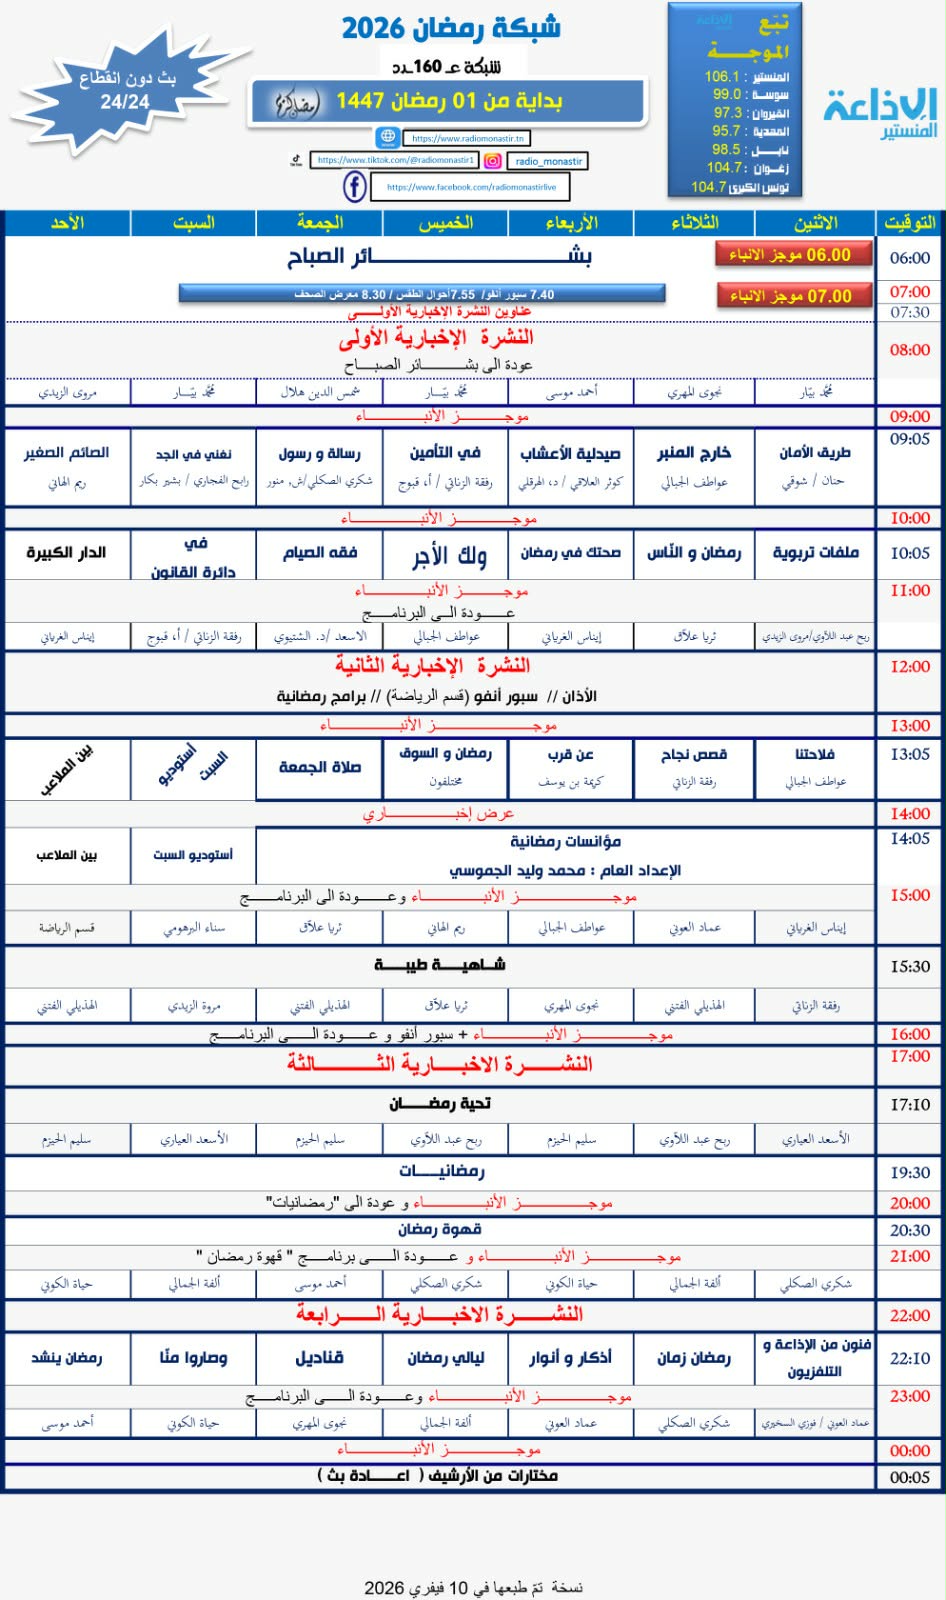 شبكة رمضان 2026
شبكة عـ 160ـدد
بداية من 01 رمضان 1447
رمضان كريم
https://www.radiomonastir.tn
https://www.tiktok.com/@radiomonastir1
radio_monastir
https://www.facebook.com/radiomonastirlive
بث دون انقطاع
24/24
تبّع الإذاعة
الموجـــة
المنستير : 106.1
سوسة : 99.0
القيروان : 97.3
المهدية : 95.7
نابـــل : 98.5
زغـوان : 104.7
تونس الكبرى 104.7
الإذاعة
المنستير
التوقيت الاثنين الثلاثاء الأربعاء الخميس الجمعة السبت الأحد
06:00 06.00 موجز الانباء بشـــــــائر الصباح
07:00 07.00 موجز الانباء 7.40 سبور أنفو/ 7.55أحوال الطقس / 8.30 معرض الصحف
07:30 عناوين النشرة الإخبارية الأولـــى
08:00 النشرة الإخبارية الأولى
عودة الى بشــــائر الصبـــاح
محمّد بيّار نجوى المهري أحمد موسى محمّد بيّــار شمس الدين هلال محمّد بيّــار مروى الزيدي
09:00 موجـــــز الأنبـــــاء
09:05 طريق الأمان خارج المنبر صيدلية الأعشاب في التأمين رسالة و رسول نغني في الجد الصائم الصغير
حنان / شوقي عواطف الجبالي كوثر العلاقي / د، الهرقلي رفقة الزناتي / أ، قبوج شكري الصكلي/ش, منور رابح الفجاري / بشير بكار ريم الهاني
10:00 موجـــــز الأنبـــــاء
10:05 ملفات تربوية رمضان و النّاس صحتك في رمضان ولك الأجر فقه الصيام في دائرة القانون الدار الكبيرة
11:00 موجـــــز الأنبـــــاء
عـــــودة الــى البرنامــــج
ربح عبد اللآوي/مروى الزيدي ثريا علاّق إيناس الغرياني عواطف الجبالي الاسعد /د. الشتيوي رفقة الزناتي / أ، قبوج إيناس الغرياني
12:00 النشرة الإخبارية الثانية
الأذان // سبور أنفو (قسم الرياضة) // برامج رمضانية
13:00 موجـــــز الأنبـــــاء
13:05 فلاحتنا قصص نجاح عن قرب رمضان و السوق صلاة الجمعة أستوديو السبت بين الملاعب
عواطف الجبالي رفقة الزناتي كريمة بن يوسف مختلفون
14:00 عرض إخبـــــــاري
14:05 مؤانسات رمضانية أستوديو السبت بين الملاعب
الإعداد العام : محمد وليد الجموسي
15:00 موجـــــز الأنبـــــاء وعـــــودة الى البرنامـــــج
إيناس الغرياني عماد العوني عواطف الجبالي ريم الهاني ثريا علاّق سناء البرهومي قسم الرياضة
15:30 شـاهيـــة طيبـــة
رفقة الزناتي الهذيلي الفتني نجوى المهري ثريا علاّق الهذيلي الفتني مروة الزيدي الهذيلي الفتني
16:00 موجـــــز الأنبـــــاء + سبور أنفو و عـــــودة الـــى البرنامـــــج
17:00 النشـــرة الاخبـــارية الثـــــالثة
17:10 تحية رمضـــان
الأسعد العياري ربح عبد اللآوي سليم الحيزم ربح عبد اللآوي سليم الحيزم الأسعد العياري سليم الحيزم
19:30 رمضانيـــات
20:00 موجـــــز الأنبـــــاء و عودة الى "رمضانيات"
20:30 قهوة رمضان
21:00 موجـــــز الأنبـــــاء و عـــــودة الـــى برنامـــج " قهوة رمضان "
شكري الصكلي ألفة الجمالي حياة الكوني شكري الصكلي أحمد موسى ألفة الجمالي حياة الكوني
22:00 النشـــرة الاخبـــارية الـــرابعة
22:10 فنون من الإذاعة و التلفزيون رمضان زمان أذكار و أنوار ليالي رمضان قناديل وصاروا منّا رمضان ينشد
23:00 موجـــــز الأنبـــــاء وعـــــودة الـــى البرنامـــــج
عماد العوني / فوزي السخيري شكري الصكلي عماد العوني ألفة الجمالي نجوى المهري حياة الكوني أحمد موسى
00:00 موجـــــز الأنبـــــاء
00:05 مختارات من الأرشيف ( اعـــادة بث )
نسخة تمّ طبعها في 10 فيفري 2026